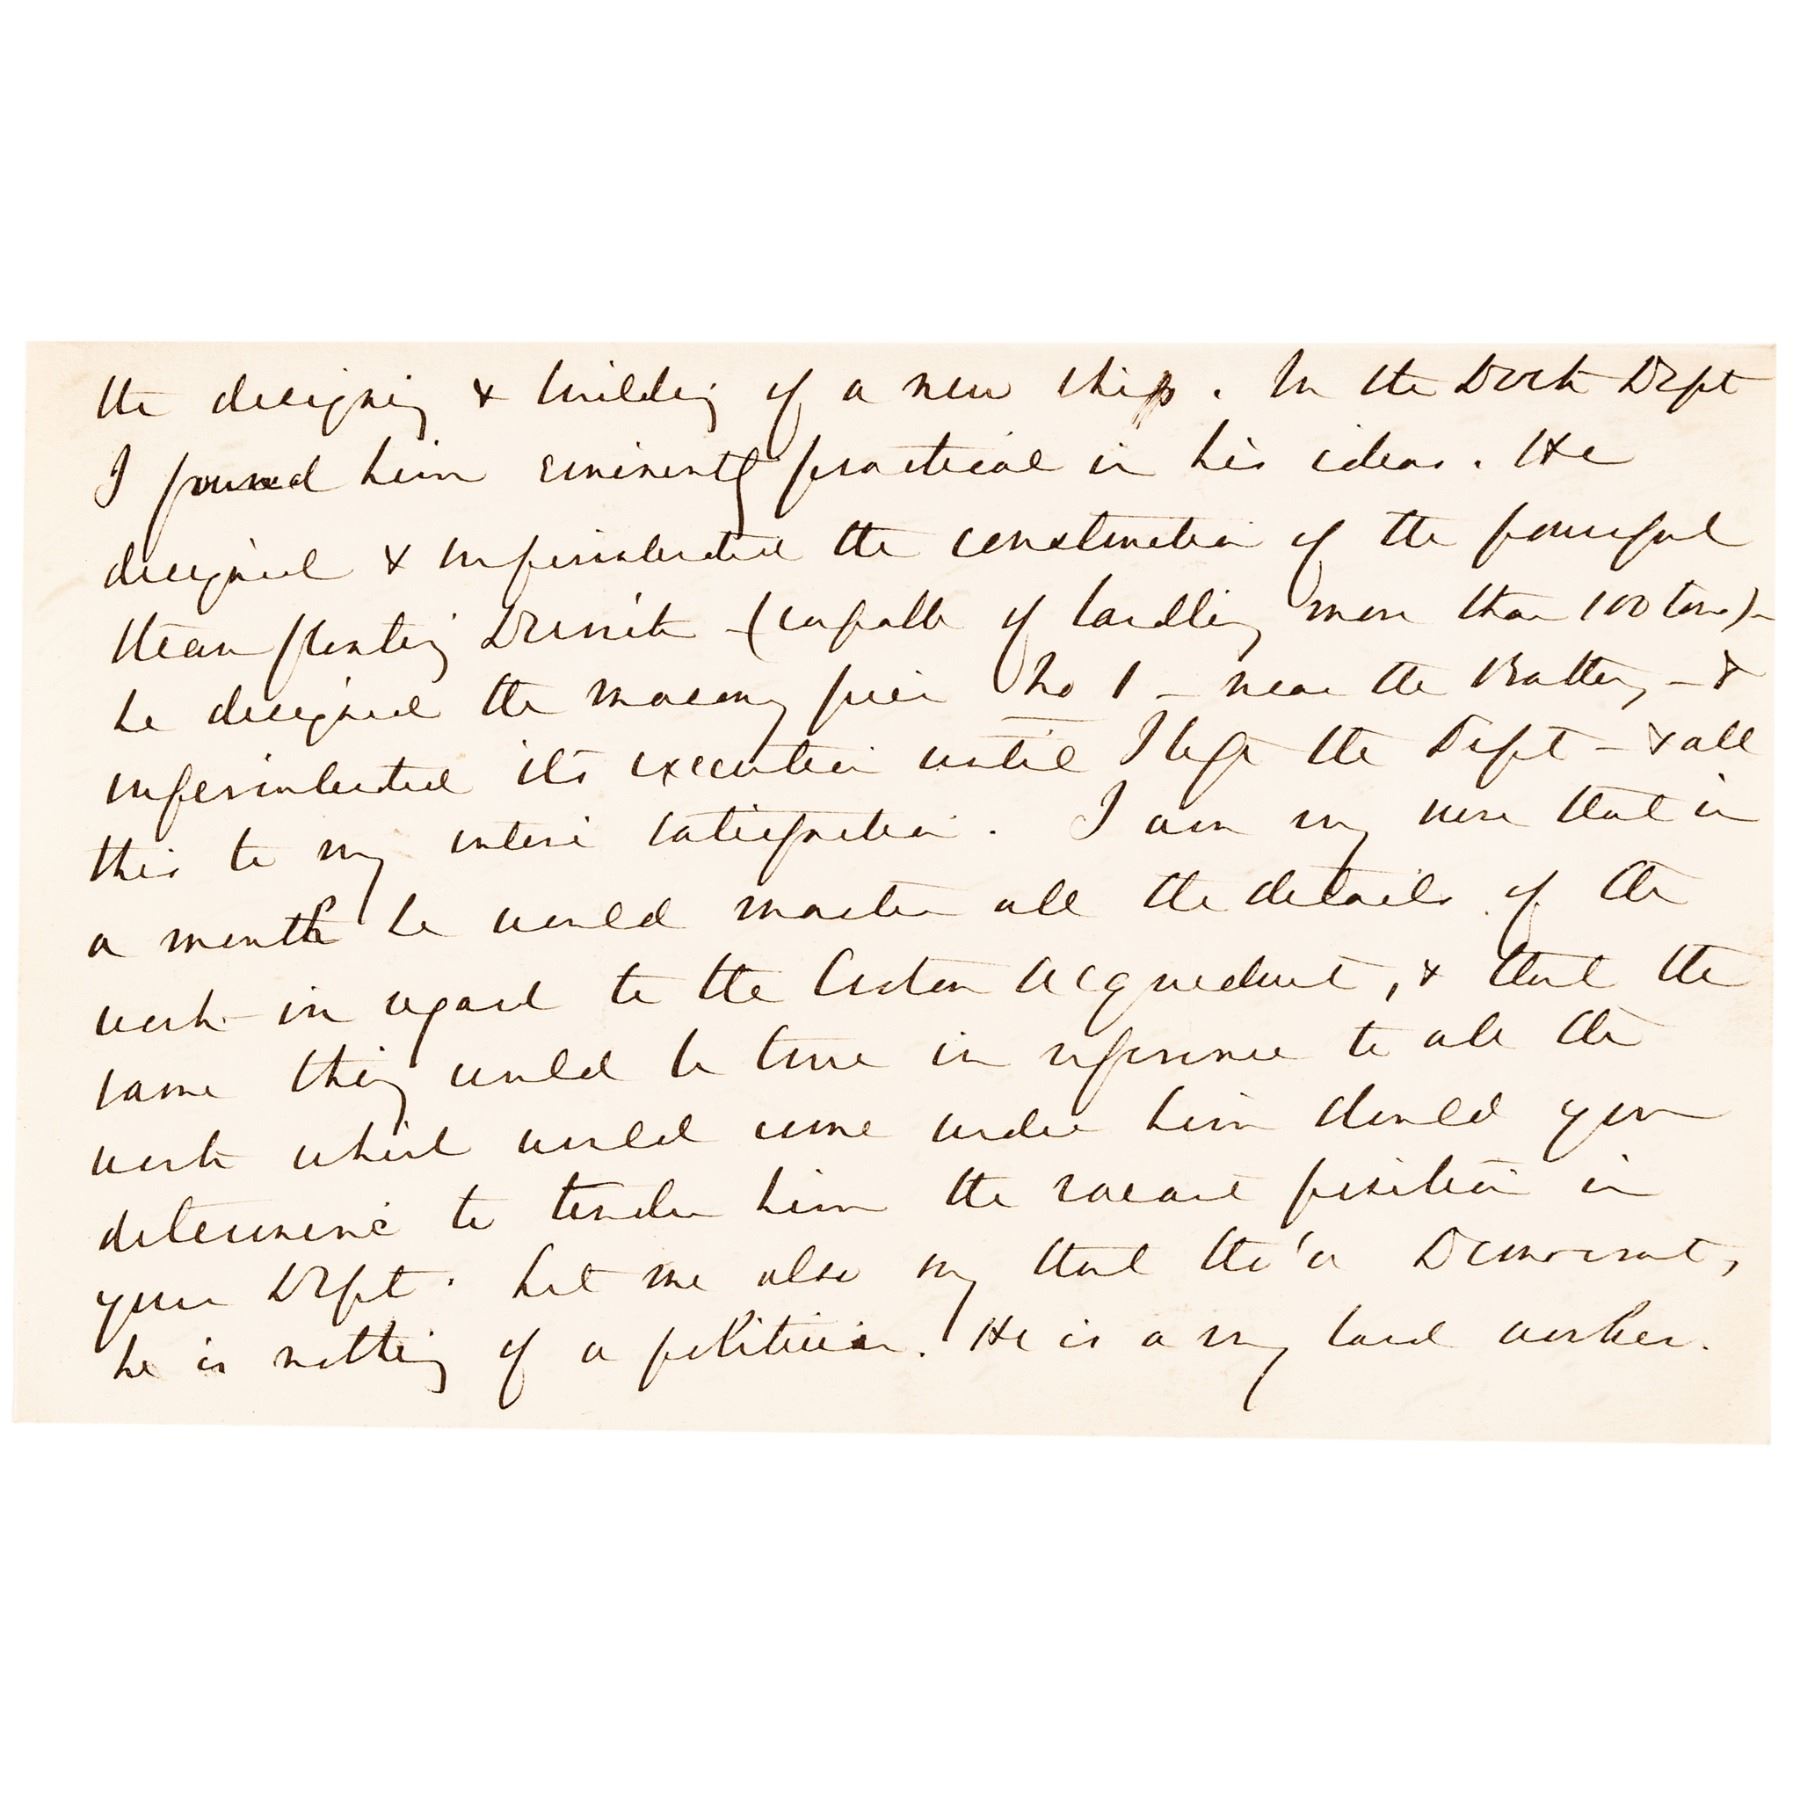 the designing & building of a new ship. In the Dock Dept
I found him eminently practical in his ideas. He
designed & superintended the construction of the powerful
steam floating Derrick - (capable of handling more than 100 tons) -
he designed the masonry pier No 1 - near the Battery - &
superintended its execution until I left the Dept - & all
this to my entire satisfaction. I am very sure that in
a month he would master all the details of the
work in regard to the Croton Acqueduct, & that the
same thing would be true in reference to all the
work which would come under him should you
determine to tender him the vacant position in
your Dept. Let me also say that tho' a Democrat,
he is nothing of a politician. He is a very hard worker.